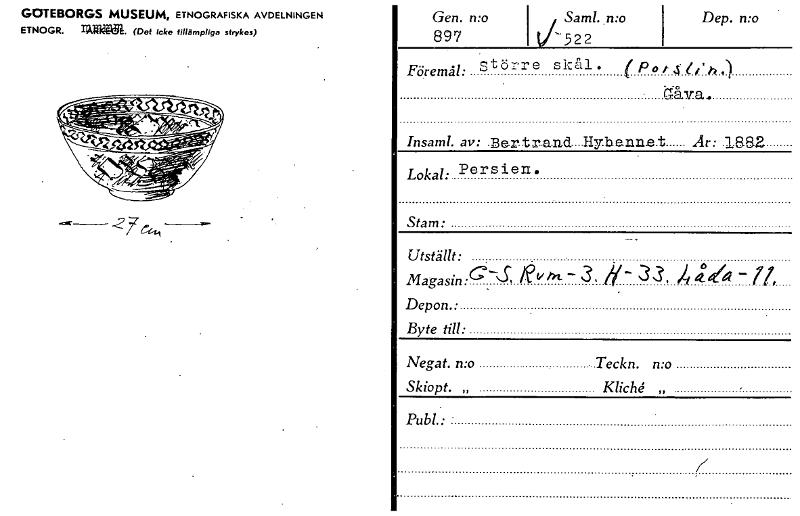 GÖTEBORGS MUSEUM, ETNOGRAFISKA AVDELNINGEN
ETNOGR. ARKEOL. (Det icke tillämpliga strykes)
27 cm
Gen. n:o Saml. n:o Dep. n:o
897 522
Föremål: Större skål. (Porslin.)
Gåva.
Insaml. av: Bertrand Hybennet År: 1882
Lokal: Persien.
Stam:
Utställt:
Magasin: G-S. Rum-3. H-33. Låda-11.
Depon.:
Byte till:
Negat. n:o Teckn. n:o
Skiopt. „ Kliché „
Publ.: